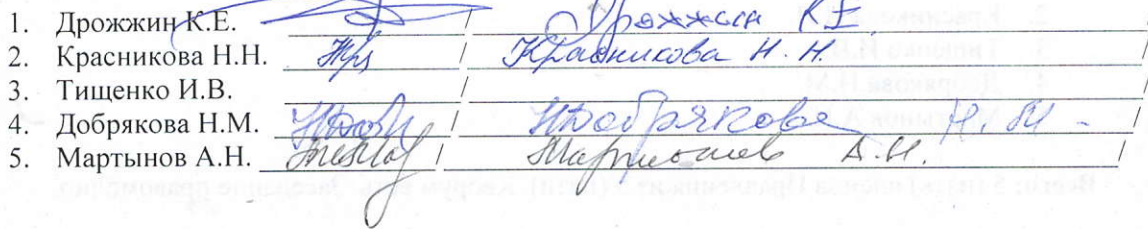 1. Дрожжин К.Е. / Дрожжин К.Е.
2. Красникова Н.Н. / Красникова Н. Н. /
3. Тищенко И.В. / /
4. Добрякова Н.М. / Добрякова Н. М. /
5. Мартынов А.Н. / Мартынов А.Н. /